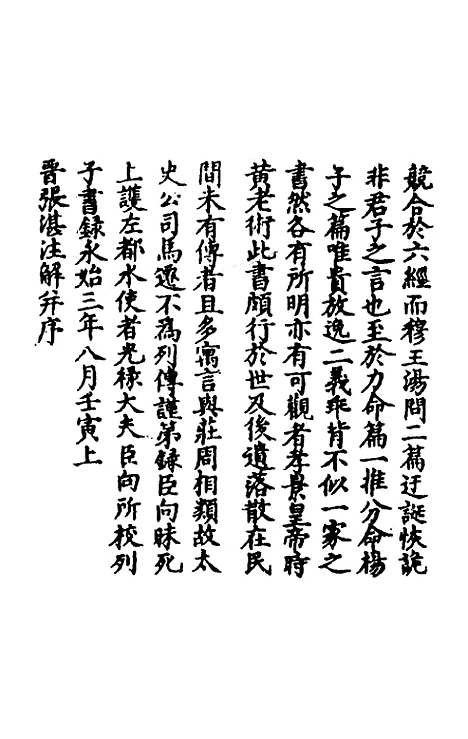 競合於六經而穆王湯問二篇迂誕恢詭
非君子之言也至於力命篇一推分命楊
子之篇唯貴放逸二義乖背不似一家之
書然各有所明亦有可觀者孝景皇帝時
黄老術此書頗行於世及後遺落散在民
間未有傳者且多寓言與莊周相類故太
史公司馬遷不爲列傳謹第録臣向昧死
上護左都水使者光禄大夫臣向所校列
子書録永始三年八月壬寅上
晋張湛注解并序